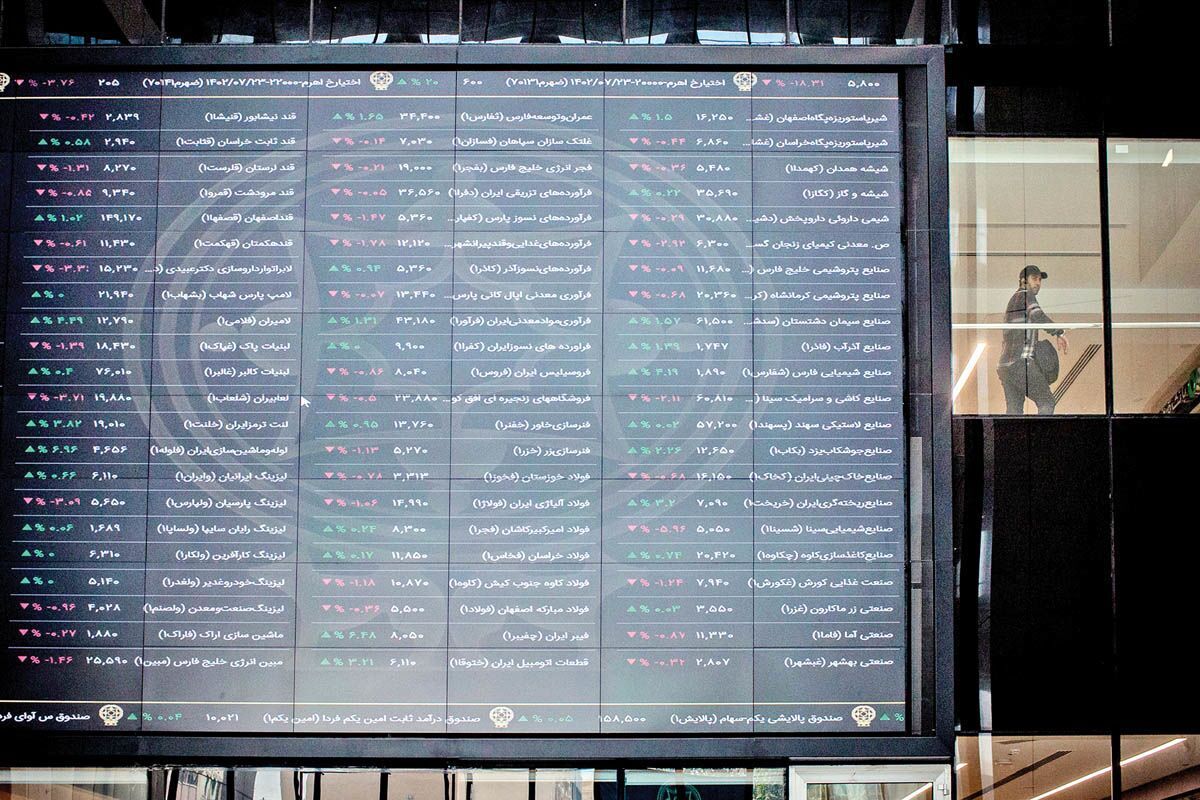 ۵,۸۰۰ ▼ % -۱۸.۳۱ اختیارخ اهرم-۲۰۰۰۰-۱۴۰۲/۰۷/۲۳ (ضهرم۷۰۱۳۱) ۶۰۰ ▲ % ۲۰ اختیارخ اهرم-۲۲۰۰۰-۱۴۰۲/۰۷/۲۳ (ضهرم۷۰۱۴۱) ۲۰۵ ▼ % -۳.۷۶
شیرپاستوریزه‌پگاه‌اصفهان (غش... ۱۶,۲۵۰ ▲ % ۱.۵ عمران‌وتوسعه‌فارس (ثفارس۱) ۳۴,۴۰۰ ▲ % ۱.۶۵ قند نیشابور (قنیشا۱) ۲,۸۳۹ ▼ % -۰.۴۲
شیرپاستوریزه‌پگاه‌خراسان (غشا... ۶,۸۶۰ ▼ % -۰.۴۴ غلتک سازان سپاهان (فسازان۱) ۷,۰۳۰ ▼ % -۰.۱۴ قند ثابت خراسان (قثابت۱) ۲,۹۴۰ ▲ % ۰.۵۸
شیشه همدان (کهمدا۱) ۵,۴۸۰ ▼ % -۰.۳۶ فجر انرژی خلیج فارس (بفجر۱) ۱۹,۰۰۰ ▼ % -۰.۲۱ قند لرستان (قلرست۱) ۸,۲۷۰ ▼ % -۱.۳۱
شیشه و گاز (کگاز۱) ۳۵,۶۹۰ ▲ % ۰.۲۲ فرآورده‌های تزریقی ایران (دفرا۱) ۳۶,۵۶۰ ▼ % -۰.۰۵ قند مرودشت (قمرو۱) ۹,۳۴۰ ▼ % -۰.۸۵
شیمی داروئی داروپخش (دشی... ۳۰,۸۸۰ ▼ % -۰.۲۹ فرآورده‌های نسوز پارس (کفپار... ۵,۳۶۰ ▼ % -۱.۴۷ قنداصفهان (قصفها۱) ۱۴۹,۱۷۰ ▲ % ۱.۰۲
ص. معدنی کیمیای زنجان گس... ۶,۳۰۰ ▼ % -۲.۹۲ فرآورده‌های‌غذایی‌وقندپیرانشهر... ۱۲,۱۲۰ ▼ % -۱.۷۸ قندهکمتان (قهکمت۱) ۱۱,۴۳۰ ▼ % -۰.۶۱
صنایع پتروشیمی خلیج فارس (... ۱۱,۶۸۰ ▼ % -۰.۰۹ فرآورده‌های‌نسوزآذر (کاذر۱) ۵,۳۶۰ ▲ % ۰.۹۴ لابراتوارداروسازی دکترعبیدی (د... ۱۵,۲۳۰ ▼ % -۳.۳
صنایع پتروشیمی کرمانشاه (کر... ۲۰,۳۶۰ ▼ % -۰.۶۸ فرآوری معدنی اپال کانی پارس... ۱۳,۴۴۰ ▼ % -۰.۰۷ لامپ پارس شهاب (بشهاب۱) ۲۱,۹۴۰ ▲ % ۰
صنایع سیمان دشتستان (سدش... ۶۱,۵۰۰ ▲ % ۱.۵۷ فرآوری‌موادمعدنی‌ایران (فرآور۱) ۴۳,۱۸۰ ▲ % ۱.۳۱ لامیران (فلامی۱) ۱۲,۷۹۰ ▲ % ۴.۴۹
صنایع آذرآب (فاذر۱) ۱,۷۴۷ ▲ % ۱.۳۹ فراورده های نسوزایران (کفرا۱) ۹,۹۰۰ ▲ % ۰ لبنیات پاک (غپاک۱) ۱۸,۴۳۰ ▼ % -۱.۳۹
صنایع شیمیایی فارس (شفارس۱) ۱,۸۹۰ ▲ % ۴.۱۹ فروسیلیس ایران (فروس۱) ۸,۰۴۰ ▼ % -۰.۸۶ لبنیات کالبر (غالبر۱) ۷۶,۰۱۰ ▲ % ۰.۴
صنایع کاشی و سرامیک سینا (... ۶۰,۸۱۰ ▼ % -۲.۱۱ فروشگاههای زنجیره ای افق کو... ۲۳,۸۸۰ ▼ % -۰.۵ لعابیران (شلعاب۱) ۱۹,۸۸۰ ▼ % -۳.۷۱
صنایع لاستیکی سهند (پسهند۱) ۵۷,۲۰۰ ▲ % ۰.۰۲ فنرسازی‌خاور (خفنر۱) ۱۳,۷۶۰ ▲ % ۰.۹۵ لنت ترمزایران (خلنت۱) ۱۹,۰۱۰ ▲ % ۳.۸۲
صنایع‌جوشکاب‌یزد (بکاب۱) ۱۲,۶۵۰ ▲ % ۲.۲۶ فنرسازی‌زر (خزر۱) ۵,۲۷۰ ▼ % -۱.۱۳ لوله‌وماشین‌سازی‌ایران (فلوله۱) ۴,۶۵۶ ▲ % ۶.۹۶
صنایع‌خاک‌چینی‌ایران (کخاک۱) ۱۶,۱۵۰ ▼ % -۰.۶۸ فولاد خوزستان (فخوز۱) ۳,۳۱۳ ▼ % -۰.۷۸ لیزینگ ایرانیان (وایران۱) ۶,۱۱۰ ▲ % ۰.۶۶
صنایع‌ریخته‌گری‌ایران (خریخت۱) ۷,۰۹۰ ▲ % ۳.۲ فولاد آلیاژی ایران (فولاژ۱) ۱۴,۹۹۰ ▼ % -۱.۰۶ لیزینگ پارسیان (ولپارس۱) ۵,۶۵۰ ▼ % -۳.۰۹
صنایع‌شیمیایی‌سینا (شسینا۱) ۵,۰۵۰ ▼ % -۵.۹۶ فولاد امیرکبیرکاشان (فجر۱) ۸,۳۰۰ ▲ % ۰.۲۴ لیزینگ رایان سایپا (ولساپا۱) ۱,۶۸۹ ▲ % ۰.۰۶
صنایع‌کاغذسازی‌کاوه (چکاوه۱) ۲۰,۴۲۰ ▲ % ۰.۷۴ فولاد خراسان (فخاس۱) ۱۱,۸۵۰ ▲ % ۰.۱۷ لیزینگ کارآفرین (ولکار۱) ۶,۳۱۰ ▲ % ۰
صنعت غذایی کورش (غکورش۱) ۷,۹۴۰ ▼ % -۱.۲۴ فولاد کاوه جنوب کیش (کاوه۱) ۱۰,۸۷۰ ▼ % -۱.۱۸ لیزینگ‌خودروغدیر (ولغدر۱) ۵,۱۴۰ ▲ % ۰
صنعتی زر ماکارون (غزر۱) ۳,۵۵۰ ▲ % ۰.۰۳ فولاد مبارکه اصفهان (فولاد۱) ۵,۵۰۰ ▼ % -۰.۳۶ لیزینگ‌صنعت‌ومعدن (ولصنم۱) ۴,۰۲۸ ▼ % -۰.۹۶
صنعتی آما (فاما۱) ۱۱,۳۳۰ ▼ % -۰.۸۷ فیبر ایران (چفیبر۱) ۸,۰۵۰ ▲ % ۶.۴۸ ماشین سازی اراک (فاراک۱) ۱,۸۸۰ ▼ % -۰.۲۷
صنعتی بهشهر (غبشهر۱) ۲,۸۰۷ ▼ % -۰.۳۲ قطعات اتومبیل ایران (ختوقا۱) ۶,۱۱۰ ▲ % ۳.۲۱ مبین انرژی خلیج فارس (مبین۱) ۲۵,۵۹۰ ▼ % -۱.۴۶
▲ % صندوق پالایشی یکم-سهام (پالایش۱) ۱۵۸,۵۰۰ ▲ % ۰.۰۵ صندوق درآمد ثابت امین یکم فردا (امین یکم۱) ۱۰,۰۲۱ ▲ % ۰.۰۴ صندوق س آوای فرد